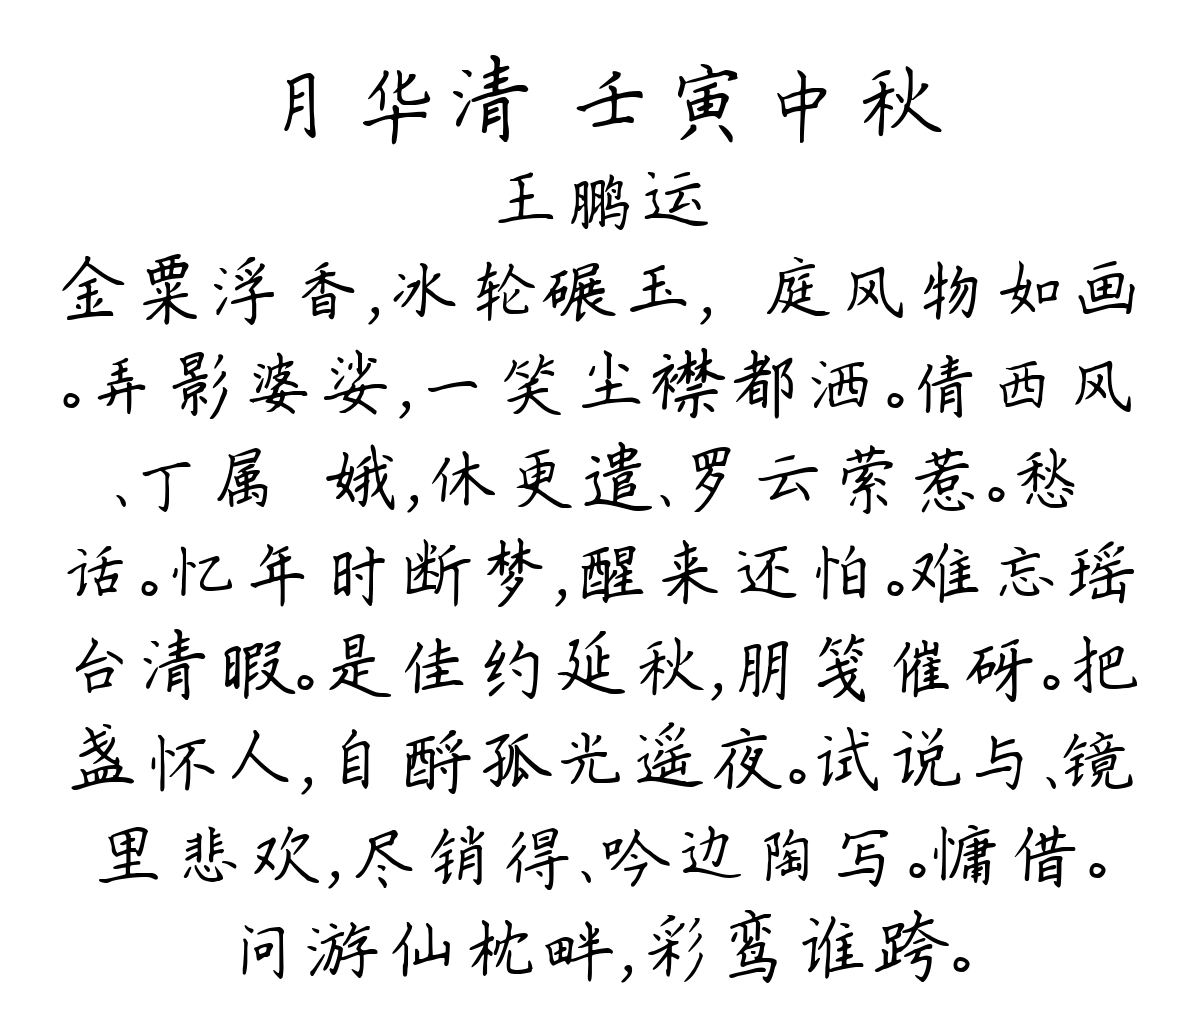 月华清 壬寅中秋
王鹏运
金粟浮香,冰轮碾玉,庭风物如画
。弄影婆娑,一笑尘襟都洒。倩西风
、丁属 娥,休更遣、罗云萦惹。愁
话。忆年时断梦,醒来还怕。难忘瑶
台清暇。是佳约延秋,朋笺催砑。把
盏怀人,自酹孤光遥夜。试说与、镜
里悲欢,尽销得、吟边陶写。慵借。
问游仙枕畔,彩鸾谁跨。